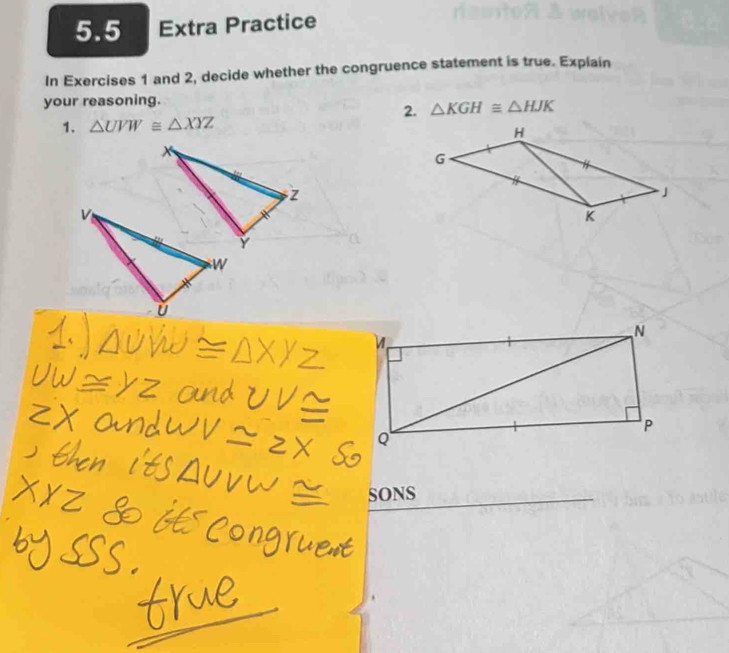 5.5 Extra Practice
In Exercises 1 and 2, decide whether the congruence statement is true. Explain
your reasoning.
1. △UVW ≅ △XYZ
2. △KGH ≅ △HJK
X
Z
Y
V
W
U
H
G
J
K
1.) △UVW ≅ △XYZ
UW ≅ YZ and UV ≅
ZX and WV ≅ ZX so
, then it's △UVW ≅
XYZ so it's congruent
by SSS.
true
N
Q
P
SONS